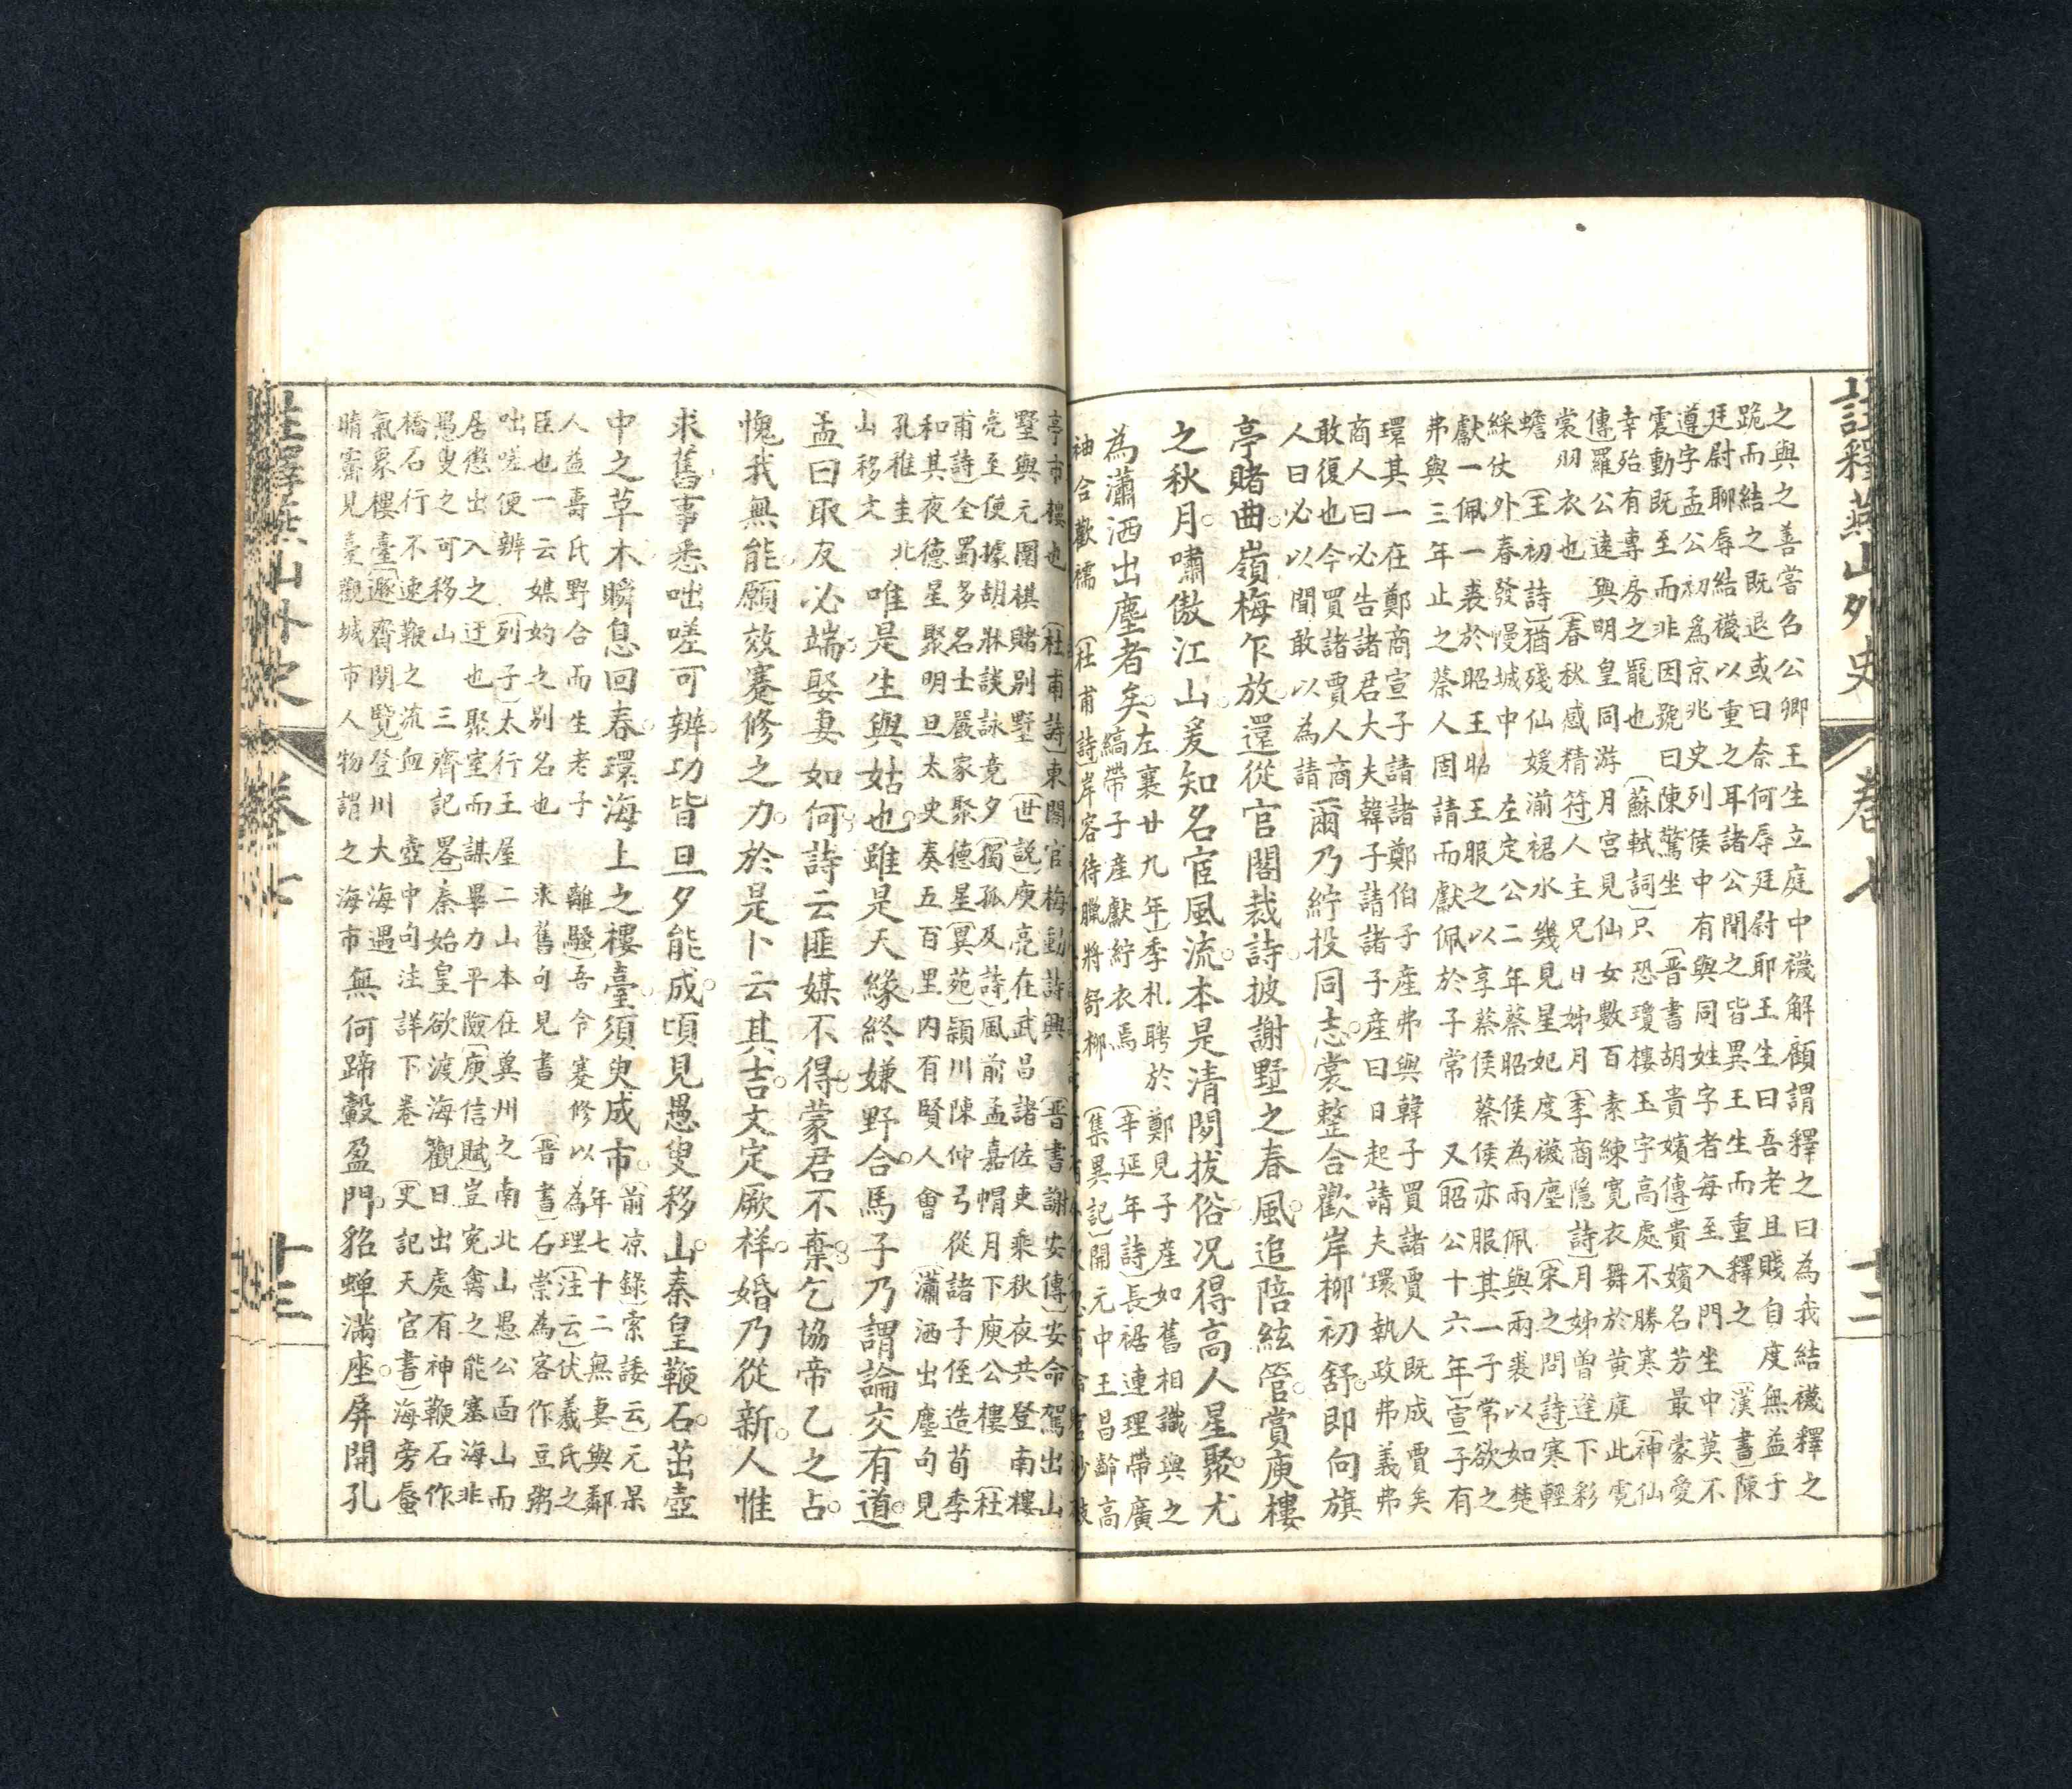 註釋燕山外史 卷七 十二
之與之善嘗召公卿王生立庭中襪解顧謂釋之曰為我結襪釋之
跪而結之既退或曰奈何辱廷尉耶王生曰吾老且賤自度無益于
廷尉聊辱結襪以重之耳諸公聞之皆異王生而重釋之〔漢書〕陳
遵字孟公初為京兆史列侯中有與同姓字者每至入門坐中莫不
震動既至而非因號曰陳驚坐〔晋書胡貴嬪傳〕貴嬪名芳最蒙愛
幸殆有專房之寵也〔蘇軾詞〕只恐瓊樓玉宇高處不勝寒〔神仙
傳〕羅公遠與明皇同游月宮見仙女數百素練寬衣舞於黃庭此霓
裳羽衣也〔春秋感精符〕人主兄日姊月〔李商隱詩〕月姊曾逢下彩
蟾〔王初詩〕猶殘仙媛湔裙水幾見星妃度襪塵〔宋之問詩〕寒輕
綵仗外春發幔城中 左定公二年蔡昭侯為兩佩與兩裘以如楚
獻一佩一裘於昭王昭王服之以享蔡侯蔡侯亦服其一子常欲之
弗與三年止之蔡人固請而獻佩於子常 又〔昭公十六年〕宣子有
環其一在鄭商宣子請諸鄭伯子產弗與韓子買諸賈人既成賈矣
商人曰必告諸君大夫韓子請諸子產曰日起請夫環執政弗義弗
敢復也今買諸賈人商
人曰必以聞敢以為請
爾乃紵投同志。裳整合歡岸柳初舒。即向旗
亭賭曲。嶺梅乍放。還從官閣裁詩。披謝墅之春風。追陪絃管。賞庾樓
之秋月。嘯傲江山。爰知名宦風流。本是清閥拔俗。况得高人星聚。尤
為瀟洒出塵者矣。
左襄廿九年〕季札聘於鄭見子產如舊相識與之
縞帶子產獻紵衣焉〔辛延年詩〕長裾連理帶廣
袖合歡襦〔杜甫詩〕岸容待臘將舒柳〔集異記〕開元中王昌齡高
亭市樓也〔杜甫詩〕東閣官梅動詩興〔晋書謝安傳〕安命駕出山
墅與元圍棋賭别墅〔世說〕庾亮在武昌諸佐吏乘秋夜共登南樓
亮至便據胡牀談詠竟夕〔獨孤及詩〕風前孟嘉帽月下庾公樓〔杜
甫詩〕全蜀多名士嚴家聚德星〔異苑〕潁川陳仲弓從諸子侄造荀季
和其夜德星聚明旦太史奏五百里内有賢人會〔瀟洒出塵句見
孔稚圭北
山移文
唯是生與姑也。雖是天緣。終嫌野合。馬子乃謂論交有道。
孟曰取友必端。娶妻如何。詩云匪媒不得。蒙君不棄。乞協帝乙之占。
愧我無能。願效蹇修之力。於是卜云其吉。文定厥祥。婚乃從新。人惟
求舊。事悉咄嗟可辦。功皆旦夕能成。頃見愚叟移山。秦皇鞭石。茁壺
中之草木。瞬息回春。環海上之樓臺。須臾成市。
〔前凉錄〕索諉云元杲
年七十二無妻與鄰
人益壽氏野合而生老子 離騷〕吾令蹇修以為理〔注云〕伏羲氏之
臣也一云媒妁之别名也 求舊句見書〔晋書〕石崇為客作豆粥
咄嗟便辦〔列子〕太行王屋二山本在冀州之南北山愚公面山而
居懲出入之迂也聚室而謀畢力平險〔庾信賦〕豈寃禽之能塞海非
愚叟之可移山 三齊記畧〕秦始皇欲渡海觀日出處有神鞭石作
橋石行不速鞭之流血 壺中句注詳下卷〔史記天官書〕海旁蜃
氣象樓臺〔遯齋閒覽〕登川大海遇
晴霽見臺觀城市人物謂之海市
無何蹄轂盈門。貂蟬滿座。屏開孔
註釋燕山外史 卷七 十三